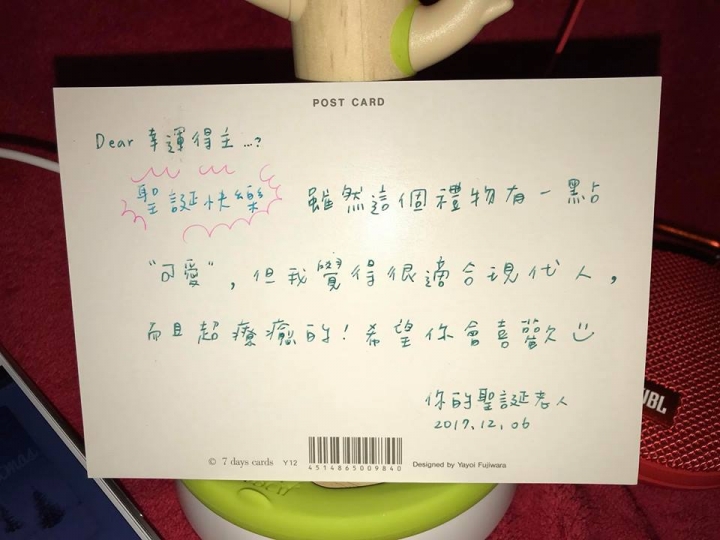 POST CARD
Dear 幸運得主...?
聖誕快樂 雖然這個禮物有一點
"可愛"，但我覺得很適合現代人，
而且超療癒的！希望你會喜歡☺
你的聖誕老人
2017.12.06
© 7 days cards Y12 4514865009840 Designed by Yayoi Fujiwara
JBL